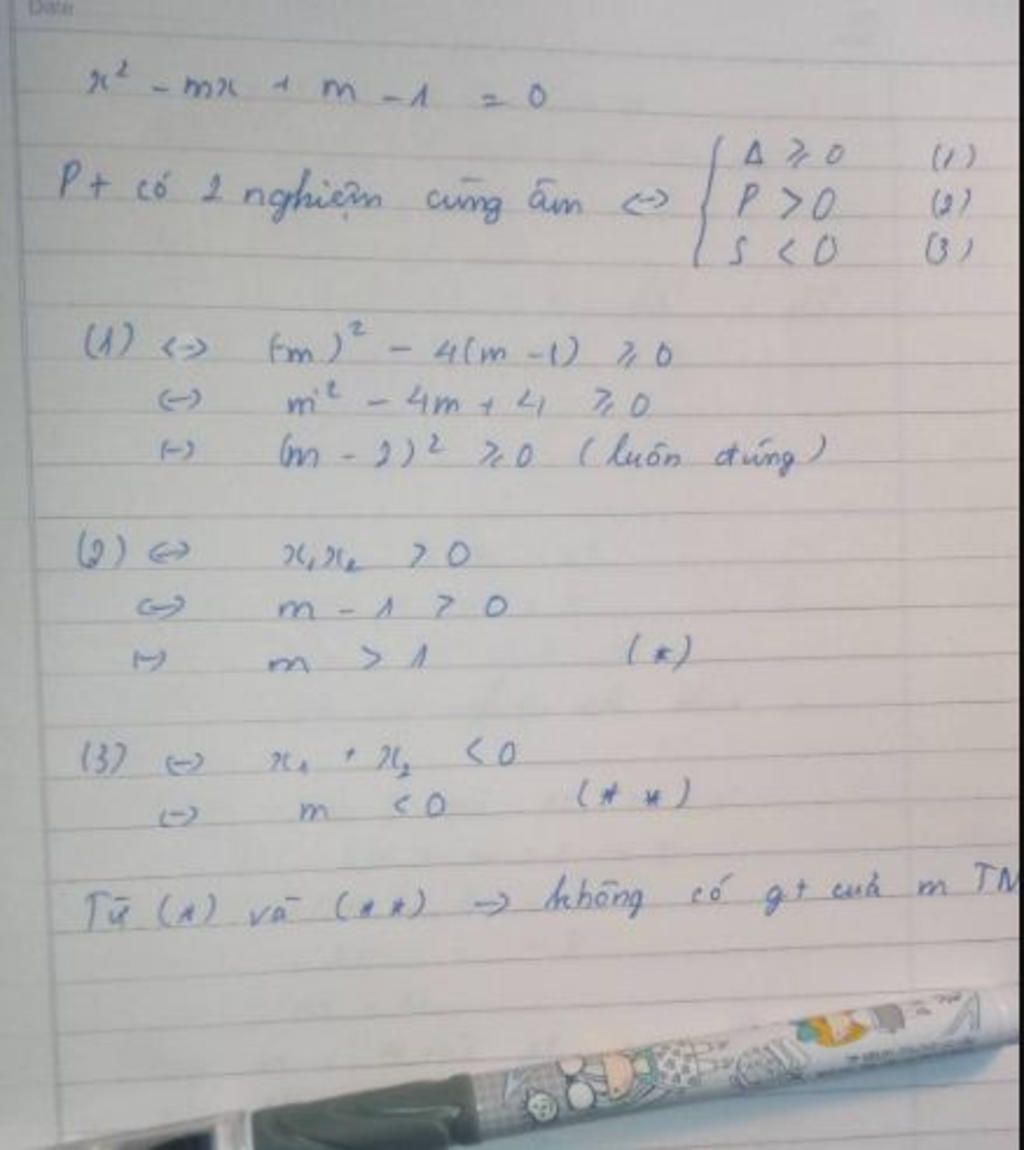 Date
x² - mx + m - 1 = 0
Pt có 2 nghiệm cùng âm <-> { Δ ≥ 0 (1)
P > 0 (2)
S < 0 (3)
(1) <-> (-m)² - 4(m - 1) ≥ 0
<-> m² - 4m + 4 ≥ 0
<-> (m - 2)² ≥ 0 (luôn đúng)
(2) <-> x₁x₂ > 0
<-> m - 1 > 0
<-> m > 1 (*)
(3) <-> x₁ + x₂ < 0
<-> m < 0 (* *)
Từ (*) và (**) -> không có gt của m TM